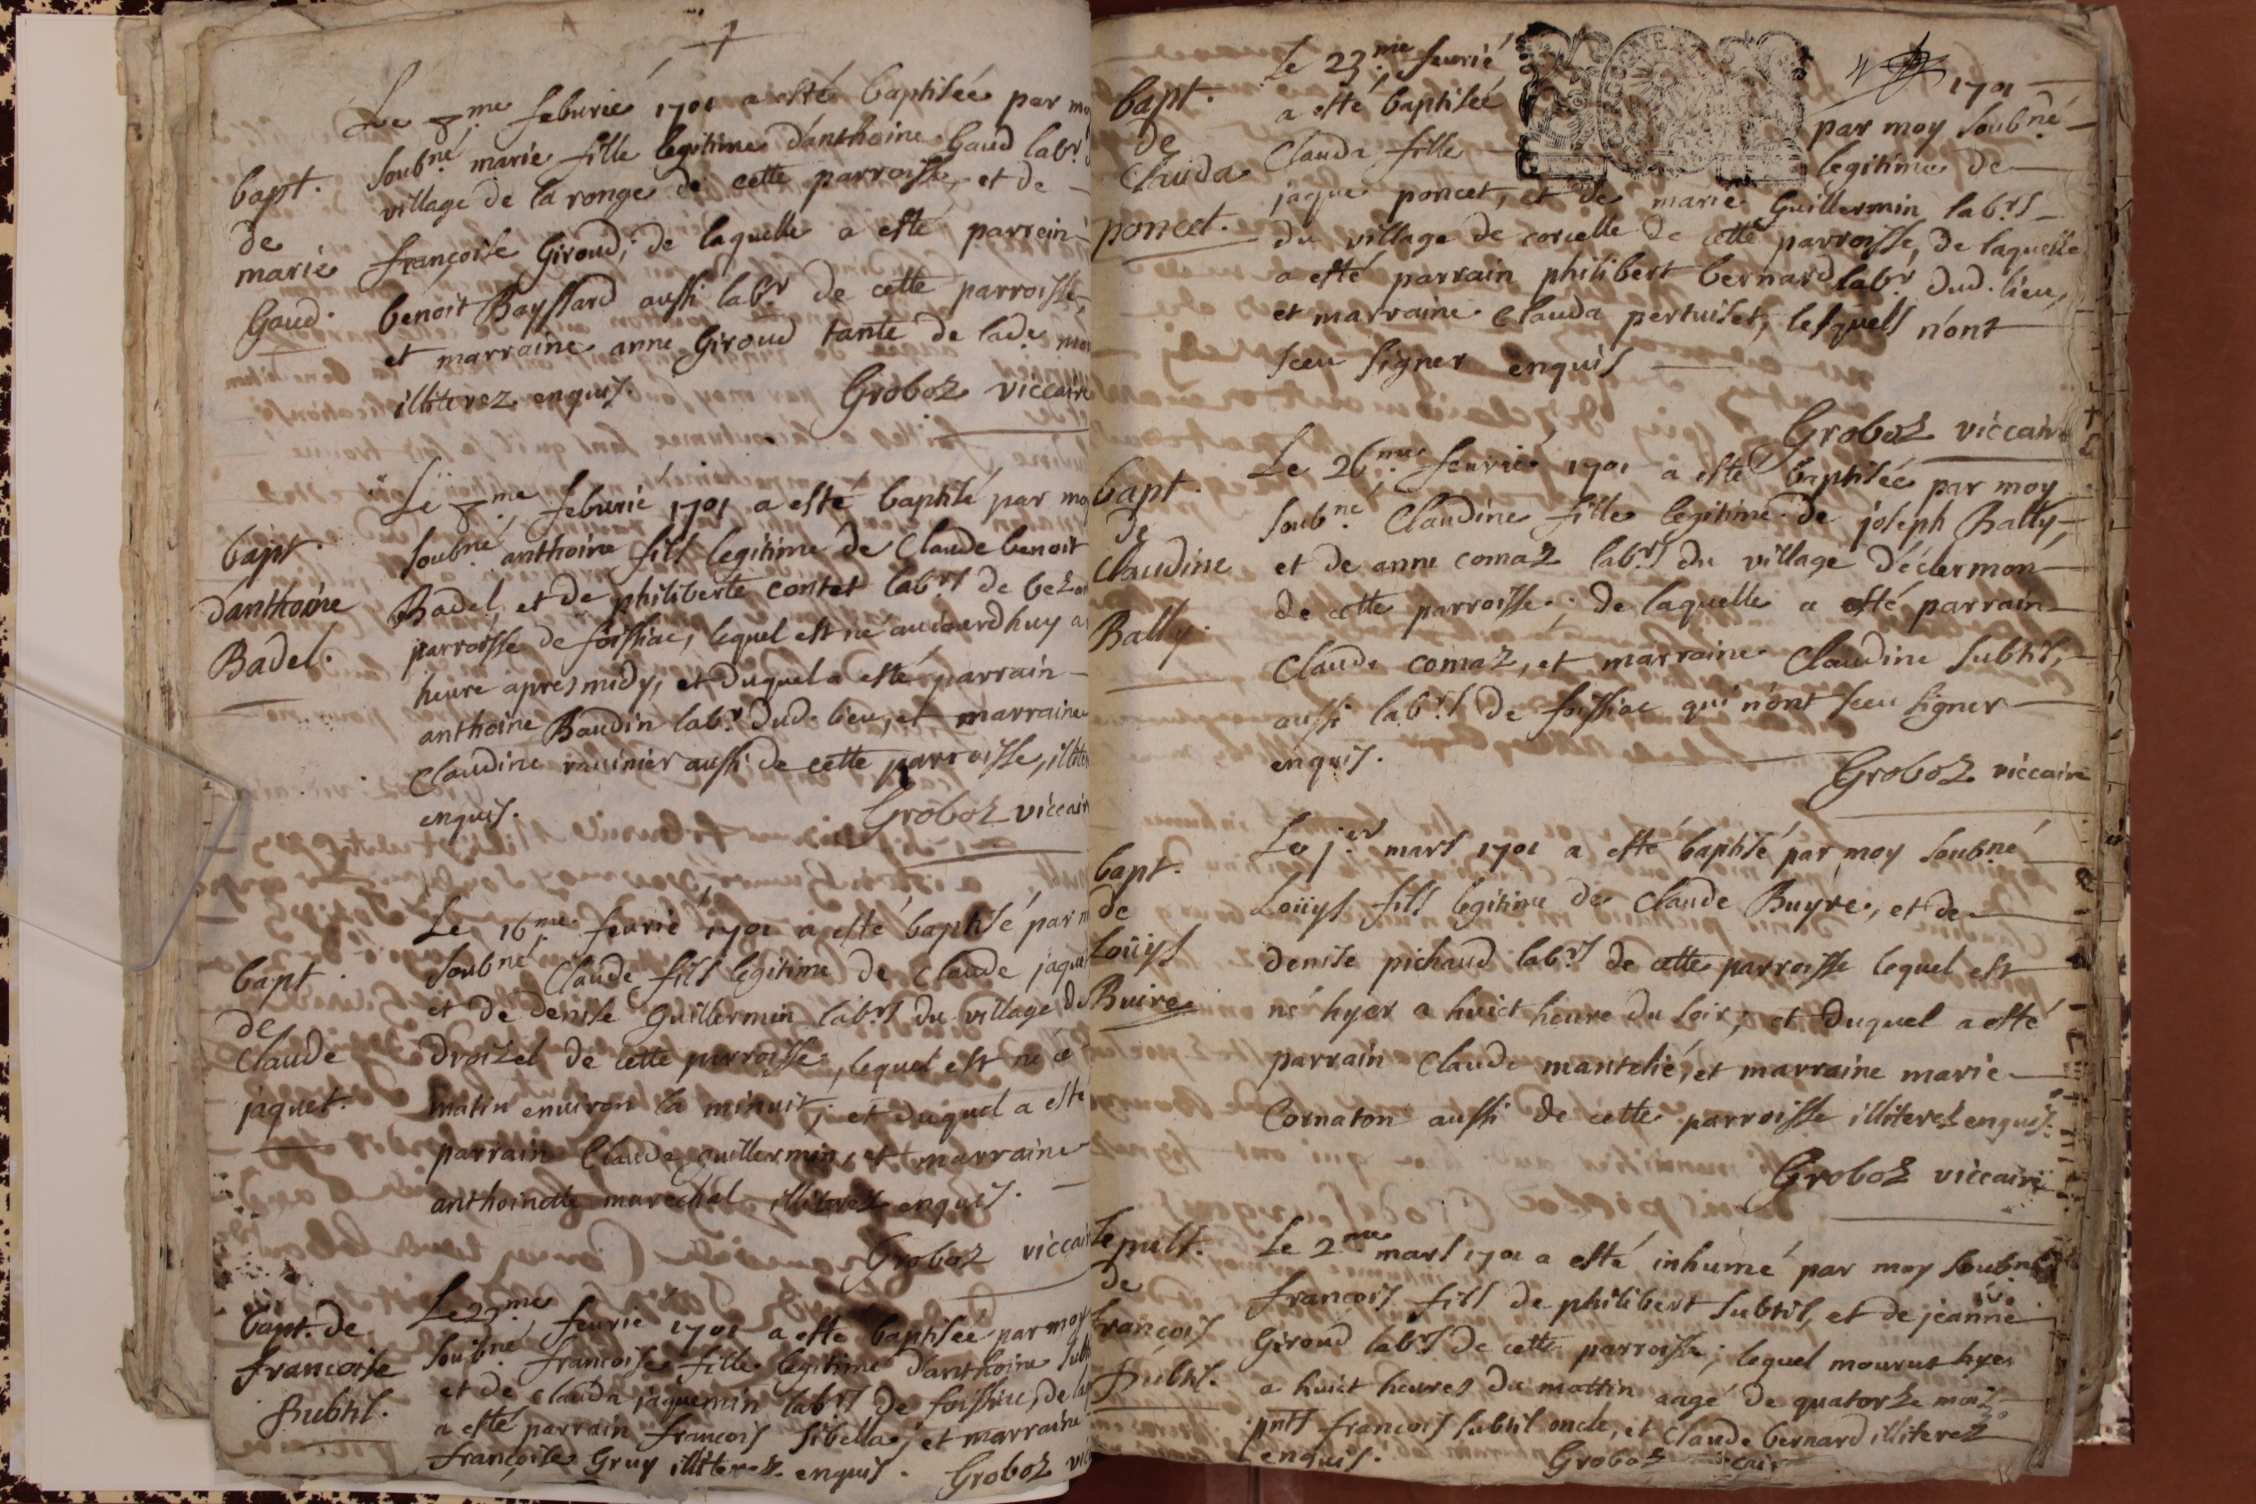 Le 7.me feburié 1701 a esté baptisée par moy
soub.né marie fille legitime d'anthoine Gaud lab.r
village de la ronge de cette parroisse, et de
françoise Giroud; de laquelle a esté parrein
benoit Boyssard aussi lab.r de cette parroisse,
et marraine anne Giroud tante de lad.e
illiterez enquis. Groboz viccaire
bapt.
de
marie
Gaud.
Le 7.me feburié 1701 a esté baptisé par moy
soubné anthoine fils legitime de Claude benoit
Badel, et de philiberte contet lab.rs de
parroisse de foissiac, lequel est né aujourdhuy a
heure apres midy, et duquel a esté parrain
anthoine Baudin lab.r dud. lieu, et marraine
Claudine muinier aussi de cette parroisse,
enquis. Groboz viccaire
bapt.
d'anthoine
Badel.
Le 16.me feurié 1701 a esté baptisé par
soubné Claude fils legitime de Claude jaquet
et de denise Guillermin lab.rs du village de
droizel de cette parroisse, lequel est né ce
matin enuiron la minuit; et duquel a esté
parrain Claude guillermin, et marraine
anthoinette marechal illiterez enquis.
Groboz viccaire
bapt.
de
Claude
jaquet.
Le 22.me feurié 1701 a esté baptisée par moy
soubné françoise fille legitime d'anthoine Subtil
et de clauda jaquemin lab.rs de foissiac, de
a esté parrain francois Sibella; et marraine
françoise Gruy illiterez enquis. Groboz
bapt. de
francoise
Subtil.
Le 23.me feurié 1701
a esté baptisée par moy soubné
Clauda fille legitime de
jaque poncet, et de marie Guillermin lab.rs
du village de corcelle de cette parroisse, de laquelle
a esté parrain philibert bernard lab.r dud. lieu,
et marraine Clauda pertuiset, lesquels n'ont
sceu signer enquis
Groboz viccaire
bapt.
de
Clauda
poncet.
Le 26.me feurié 1701 a esté baptisée par moy
soubné Claudine fille legitime de joseph Bally,
et de anne comaz lab.rs du village d'éclermon
de cette parroisse; de laquelle a esté parrain
Claude comaz, et marraine Claudine Subtil,
aussi lab.rs de foissiac qui n'ont sceu signer
enquis.
Groboz viccaire
bapt.
de
Claudine
Bally.
Le j.er mars 1701 a esté baptisé par moy soubné
Loüys fils legitime de Claude Buyre, et de
denise pichaud lab.rs de cette parroisse lequel est
né hyer a huict heure du soir, et duquel a esté
parrain Claude mantelié, et marraine marie
Cornaton aussi de cette parroisse illiterez enquis.
Groboz viccaire
bapt.
de
Loüys
Buire
Le 2.me mars 1701 a esté inhumé par moy soubné
françois fils de philibert Subtil, et de jeanne
Giroud lab.rs de cette parroisse; lequel mourut hyer
a huict heures du mattin aagé de quatorze mois
pnts francois Subtil oncle, et Claude bernard illiterez
enquis. Groboz
Sepult.
de
francois
Subtil.